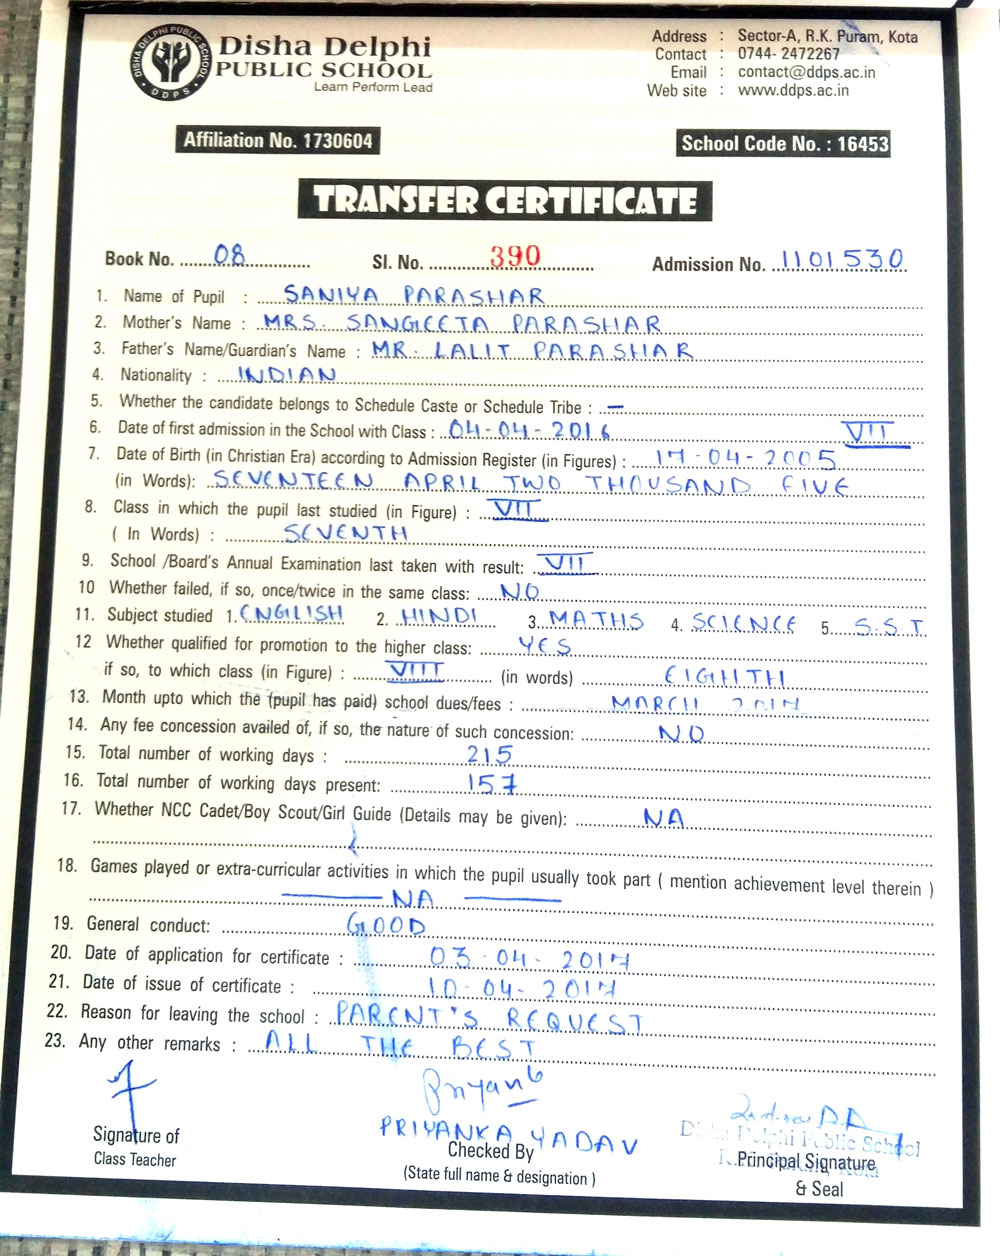 DISHA DELPHI PUBLIC SCHOOL
DDPS
Disha Delphi
PUBLIC SCHOOL
Learn Perform Lead
Address : Sector-A, R.K. Puram, Kota
Contact : 0744- 2472267
Email : contact@ddps.ac.in
Web site : www.ddps.ac.in
Affiliation No. 1730604
School Code No. : 16453
TRANSFER CERTIFICATE
Book No. 08 Sl. No. 390 Admission No. 1101530
1. Name of Pupil : SANIYA PARASHAR
2. Mother's Name : MRS. SANGEETA PARASHAR
3. Father's Name/Guardian's Name : MR. LALIT PARASHAR
4. Nationality : INDIAN
5. Whether the candidate belongs to Schedule Caste or Schedule Tribe : –
6. Date of first admission in the School with Class : 04-04-2016 VII
7. Date of Birth (in Christian Era) according to Admission Register (in Figures) : 17-04-2005
(in Words): SEVENTEEN APRIL TWO THOUSAND FIVE
8. Class in which the pupil last studied (in Figure) : VII
( In Words) : SEVENTH
9. School /Board's Annual Examination last taken with result: VII
10 Whether failed, if so, once/twice in the same class: NO
11. Subject studied 1. ENGLISH 2. HINDI 3. MATHS 4. SCIENCE 5. S.S.T
12 Whether qualified for promotion to the higher class: YES
if so, to which class (in Figure) : VIII (in words) EIGHTH
13. Month upto which the (pupil has paid) school dues/fees : MARCH 2017
14. Any fee concession availed of, if so, the nature of such concession: NO
15. Total number of working days : 215
16. Total number of working days present: 157
17. Whether NCC Cadet/Boy Scout/Girl Guide (Details may be given): NA
18. Games played or extra-curricular activities in which the pupil usually took part ( mention achievement level therein )
NA
19. General conduct: GOOD
20. Date of application for certificate : 03-04-2017
21. Date of issue of certificate : 10-04-2017
22. Reason for leaving the school : PARENT'S REQUEST
23. Any other remarks : ALL THE BEST
PRIYANKA YADAV
Disha Delphi Public School
Signature of Checked By Principal Signature
Class Teacher (State full name & designation ) & Seal